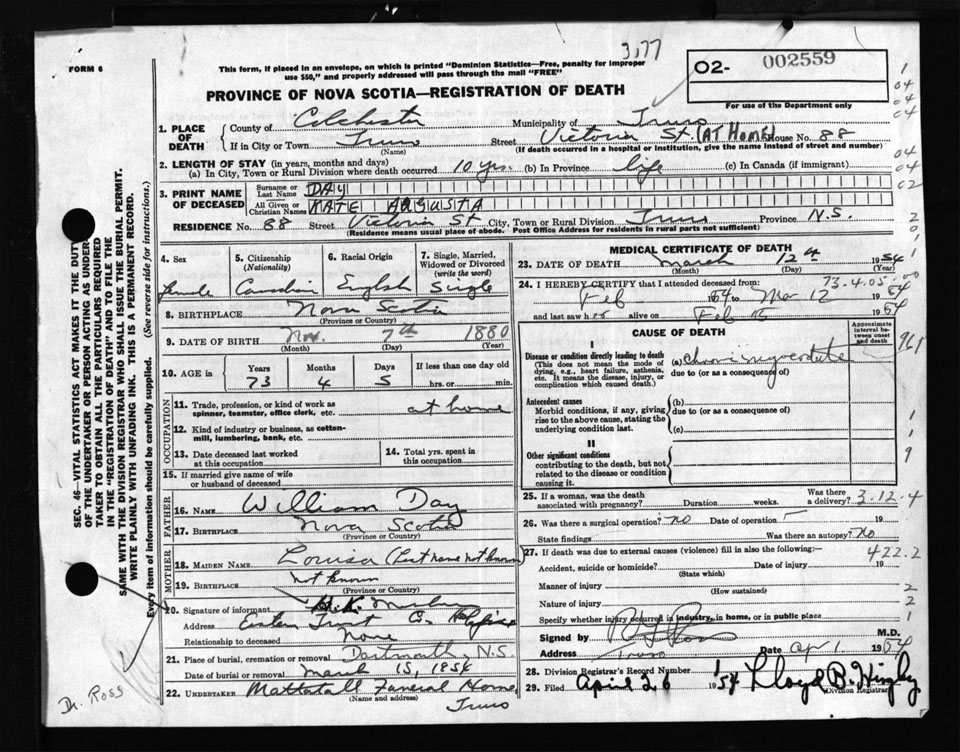 3,77
FORM 6
This form, if placed in an envelope, on which is printed "Dominion Statistics—Free, penalty for improper
use $50," and properly addressed will pass through the mail "FREE"
02- 002559
For use of the Department only
PROVINCE OF NOVA SCOTIA—REGISTRATION OF DEATH
1. PLACE OF DEATH
County of Colchester Municipality of Truro
If in City or Town Truro Street Victoria St. (AT HOME) House No. 88
(Name) (If death occurred in a hospital or institution, give the name instead of street and number)
2. LENGTH OF STAY (in years, months and days)
(a) In City, Town or Rural Division where death occurred 10 yrs. (b) In Province life (c) In Canada (if immigrant)
3. PRINT NAME OF DECEASED
Surname or Last Name DAY
All Given or Christian Names KATE AUGUSTA
RESIDENCE No. 88 Street Victoria St City, Town or Rural Division Truro Province N.S.
(Residence means usual place of abode. Post Office Address for residents in rural parts not sufficient)
4. Sex
Female
5. Citizenship
(Nationality)
Canadian
6. Racial Origin
English
7. Single, Married,
Widowed or Divorced
(write the word)
Single
8. BIRTHPLACE Nova Scotia
(Province or Country)
9. DATE OF BIRTH Nov. 7th 1880
(Month) (Day) (Year)
10. AGE in
Years Months Days If less than one day old
73 4 5 hrs. or min.
OCCUPATION
11. Trade, profession, or kind of work as
spinner, teamster, office clerk, etc. at home
12. Kind of industry or business, as cotton-
mill, lumbering, bank, etc.
13. Date deceased last worked
at this occupation
14. Total yrs. spent in
this occupation
15. If married give name of wife
or husband of deceased
FATHER
16. NAME William Day
17. BIRTHPLACE Nova Scotia
(Province or Country)
MOTHER
18. MAIDEN NAME Louisa (Last name not known)
19. BIRTHPLACE not known
(Province or Country)
20. Signature of informant
Address Eastern Trust Co.
Relationship to deceased None
21. Place of burial, cremation or removal Dartmouth, N.S.
Date of burial or removal March 15, 1954
22. UNDERTAKER Mattatall Funeral Home
(Name and address)
Truro
MEDICAL CERTIFICATE OF DEATH
23. DATE OF DEATH March 12th 1954
(Month) (Day) (Year)
24. I HEREBY CERTIFY that I attended deceased from: 73-4.05
Feb 1954 to Mar 12 1954
and last saw her alive on Feb 1954
CAUSE OF DEATH
Approximate interval between onset and death
I
Disease or condition directly leading to death
(This does not mean the mode of
dying, e.g., heart failure, asthenia,
etc. It means the disease, injury, or
complication which caused death.)
(a) Chronic myocarditis
due to (or as a consequence of)
Antecedent causes
Morbid conditions, if any, giving
rise to the above cause, stating the
underlying condition last.
(b)
due to (or as a consequence of)
(c)
II
Other significant conditions
contributing to the death, but not
related to the disease or condition
causing it.
25. If a woman, was the death
associated with pregnancy? Duration weeks. Was there
a delivery? 3.12.4
26. Was there a surgical operation? no Date of operation 19
State findings Was there an autopsy? No
27. If death was due to external causes (violence) fill in also the following:— 422.2
Accident, suicide or homicide? Date of injury 19
(State which)
Manner of injury
(How sustained)
Nature of injury
Specify whether injury occurred in industry, in home, or in public place
Signed by M.D.
Address Truro Date Apr 1. 1954
28. Division Registrar's Record Number
29. Filed April 26 1954 Lloyd B. Higby
Division Registrar
SEC. 46—VITAL STATISTICS ACT MAKES IT THE DUTY
OF THE UNDERTAKER OR PERSON ACTING AS UNDER-
TAKER TO OBTAIN ALL THE PARTICULARS REQUIRED
IN THE "REGISTRATION OF DEATH" AND TO FILE THE
SAME WITH THE DIVISION REGISTRAR WHO SHALL ISSUE THE BURIAL PERMIT.
WRITE PLAINLY WITH UNFADING INK. THIS IS A PERMANENT RECORD.
Every item of information should be carefully supplied. (See reverse side for instructions.)
Dr. Ross